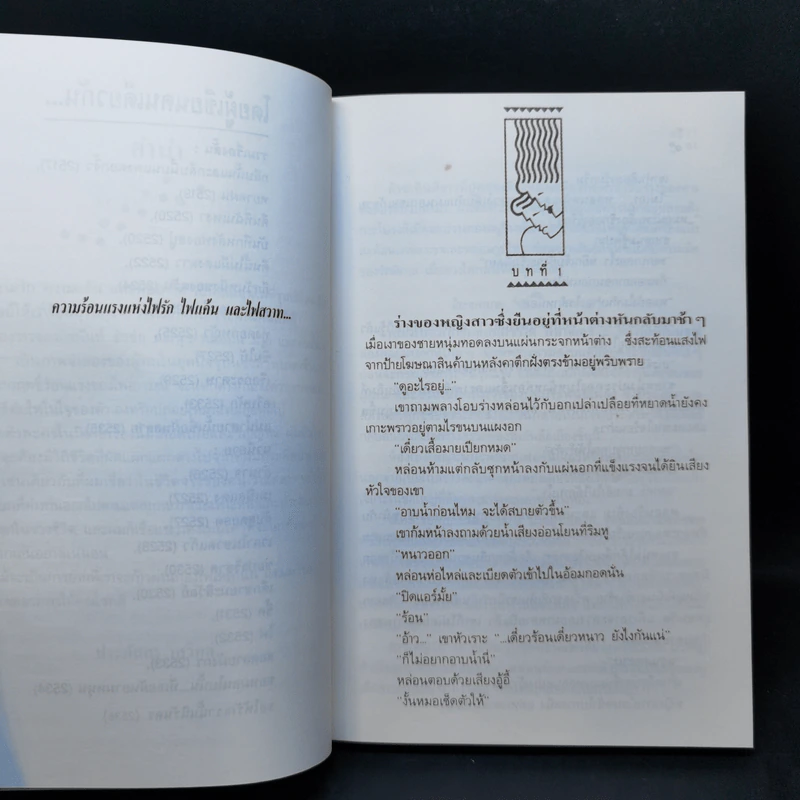 ความร้อนแรงแห่งไฟรัก ไฟแค้น และไฟสวาท...
บทที่ 1
ร่างของหญิงสาวซึ่งยืนอยู่ที่หน้าต่างหันกลับมาช้า ๆ
เมื่อเงาของชายหนุ่มทอดลงบนแผ่นกระจกหน้าต่าง ซึ่งสะท้อนแสงไฟ
จากป้ายโฆษณาสินค้าบนหลังคาตึกฝั่งตรงข้ามอยู่พริบพราย
"ดูอะไรอยู่..."
เขาถามพลางโอบร่างหล่อนไว้กับอกเปล่าเปลือยที่หยาดน้ำยังคง
เกาะพราวอยู่ตามไรขนบนแผงอก
"เดี๋ยวเสื้อมายเปียกหมด"
หล่อนห้ามแต่กลับซุกหน้าลงกับแผ่นอกที่แข็งแรงจนได้ยินเสียง
หัวใจของเขา
"อาบน้ำก่อนไหม จะได้สบายตัวขึ้น"
เขาก้มหน้าลงถามด้วยน้ำเสียงอ่อนโยนที่ริมหู
"หนาวออก"
หล่อนห่อไหล่และเบียดตัวเข้าไปในอ้อมกอดนั่น
"ปิดแอร์มั้ย"
"ร้อน"
"อ้าว..." เขาหัวเราะ "...เดี๋ยวร้อนเดี๋ยวหนาว ยังไงกันแน่"
"ก็ไม่อยากอาบน้ำนี่"
หล่อนตอบด้วยเสียงอู้อี้
"งั้นหมอเช็ดตัวให้"